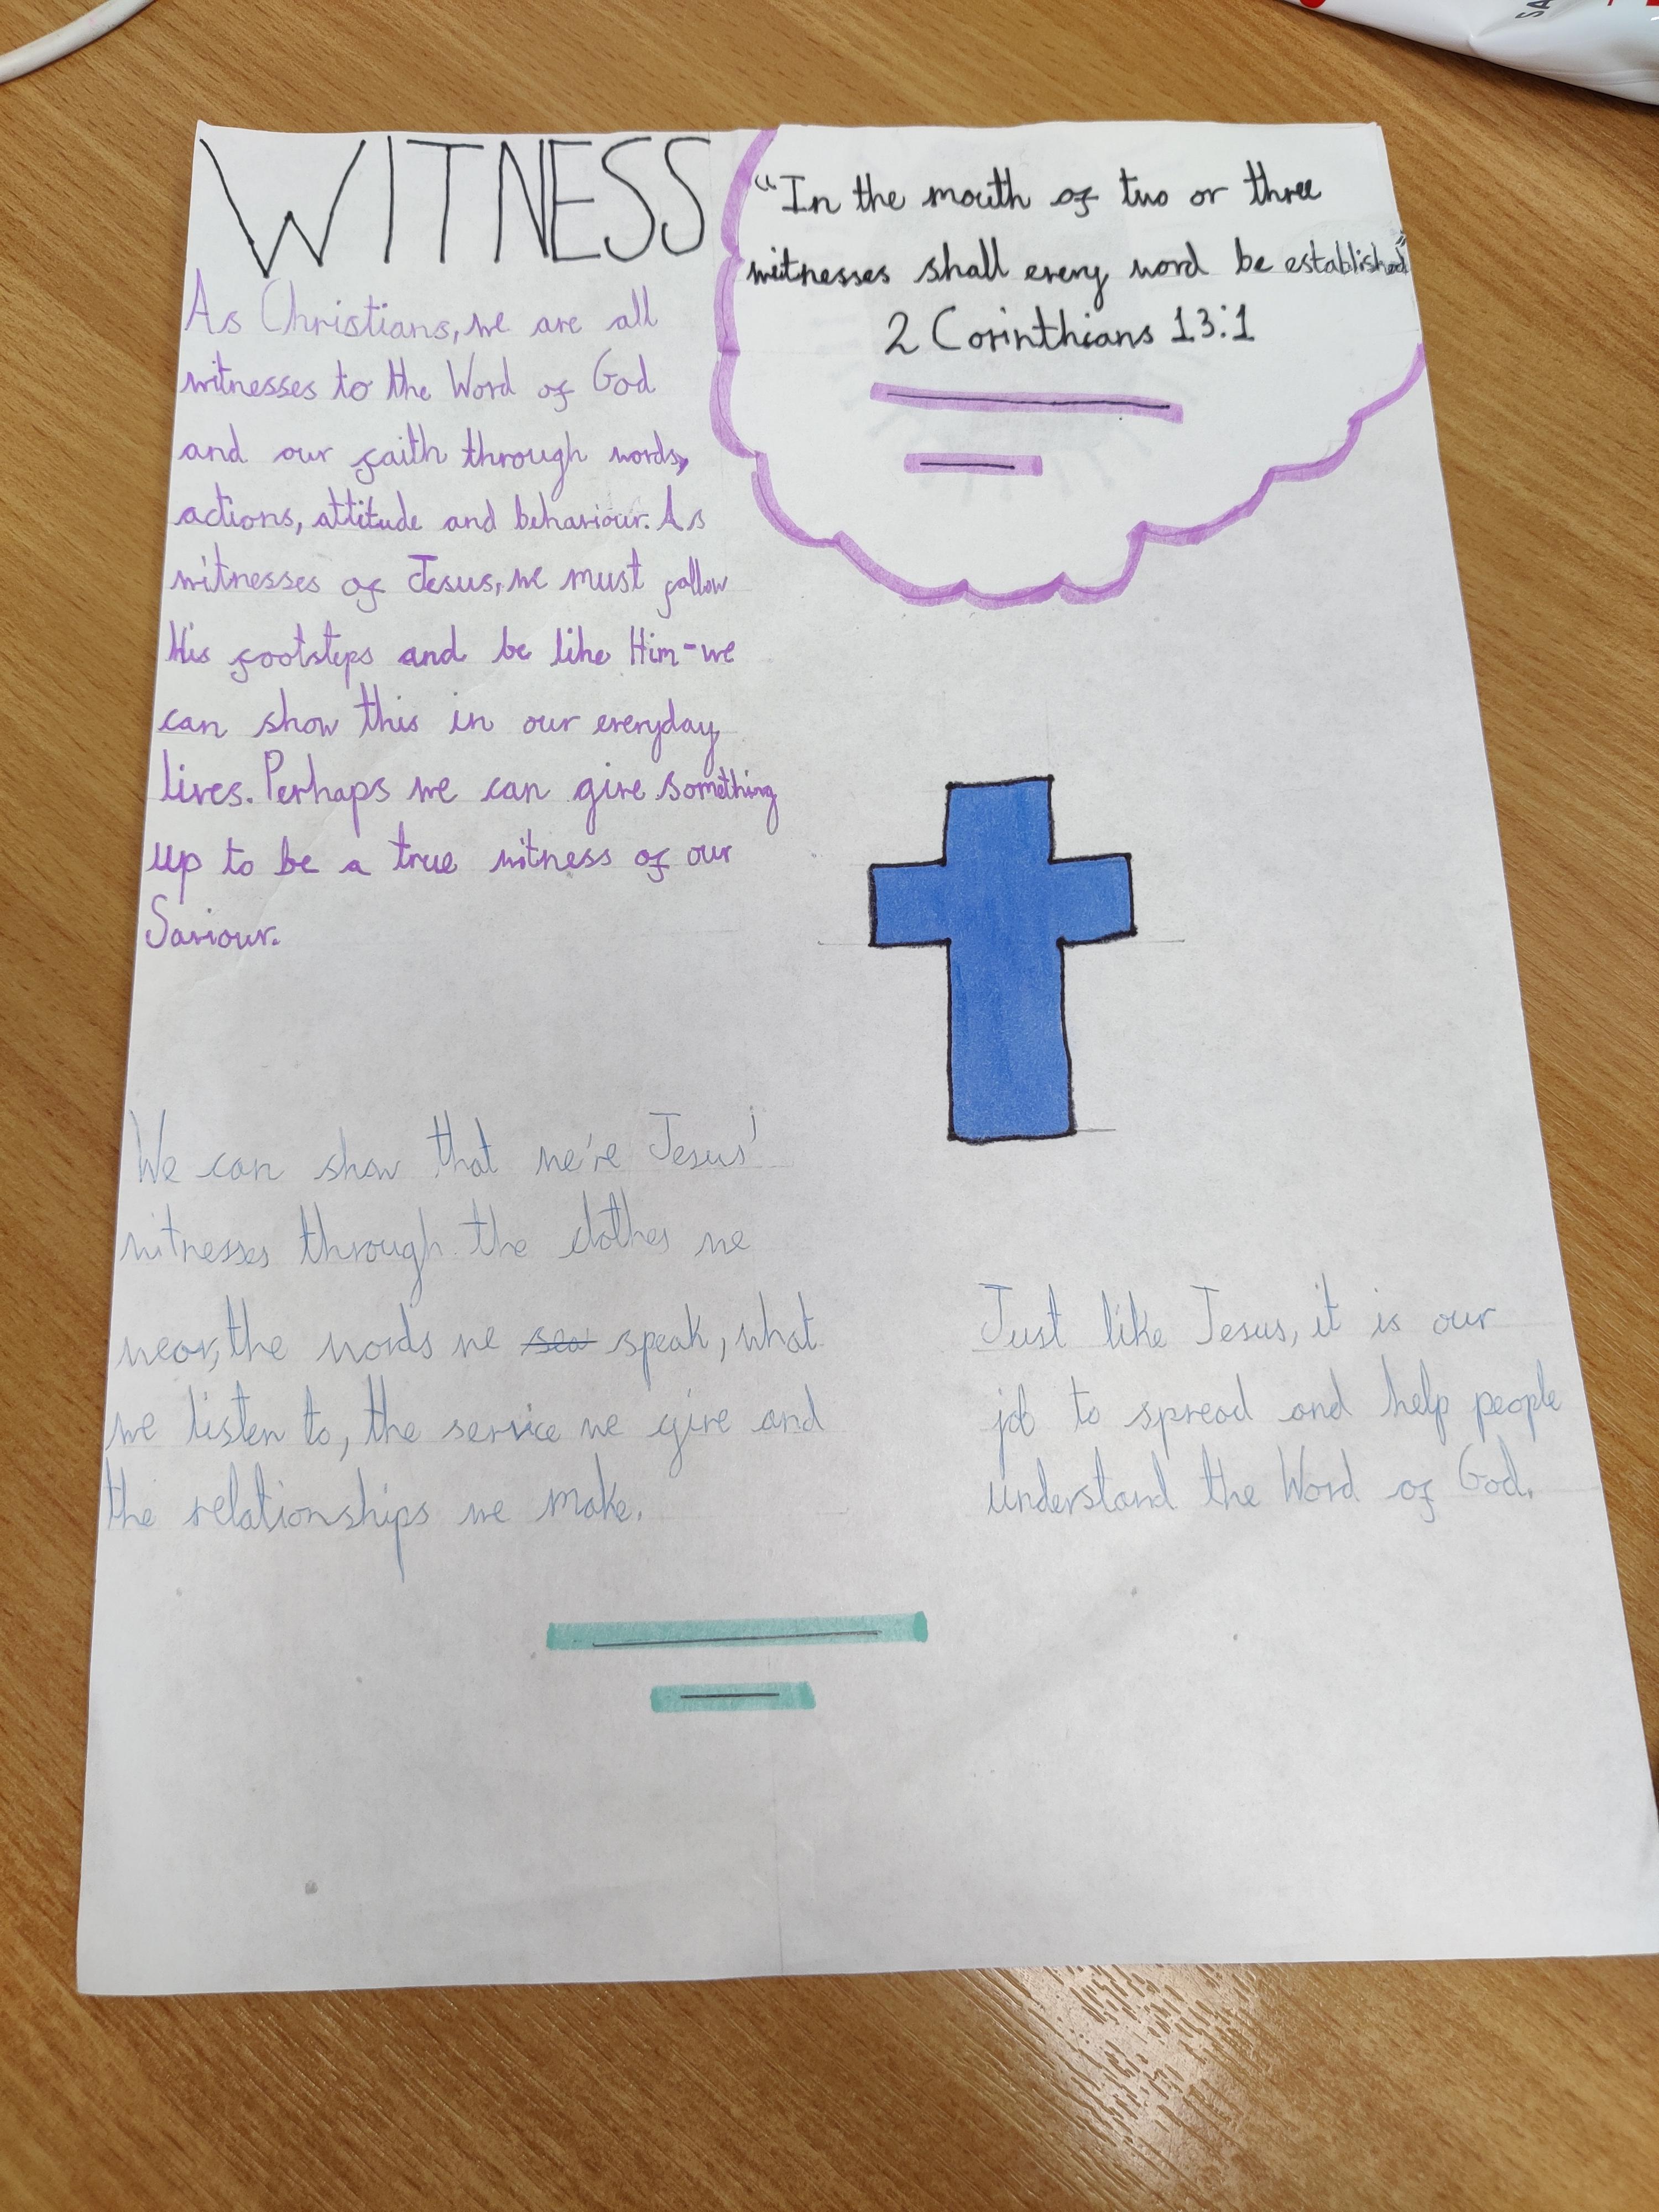 WITNESS
"In the mouth of two or three
witnesses shall every word be established"
2 Corinthians 13:1
As Christians, we are all
witnesses to the Word of God
and our faith through words,
actions, attitude and behaviour. As
witnesses of Jesus, we must follow
His footsteps and be like Him-we
can show this in our everyday
lives. Perhaps we can give something
up to be a true witness of our
Saviour.
We can show that we're Jesus'
witnesses through the clothes we
wear, the words we speak, what
we listen to, the service we give and
the relationships we make.
Just like Jesus, it is our
job to spread and help people
understand the Word of God.
SA